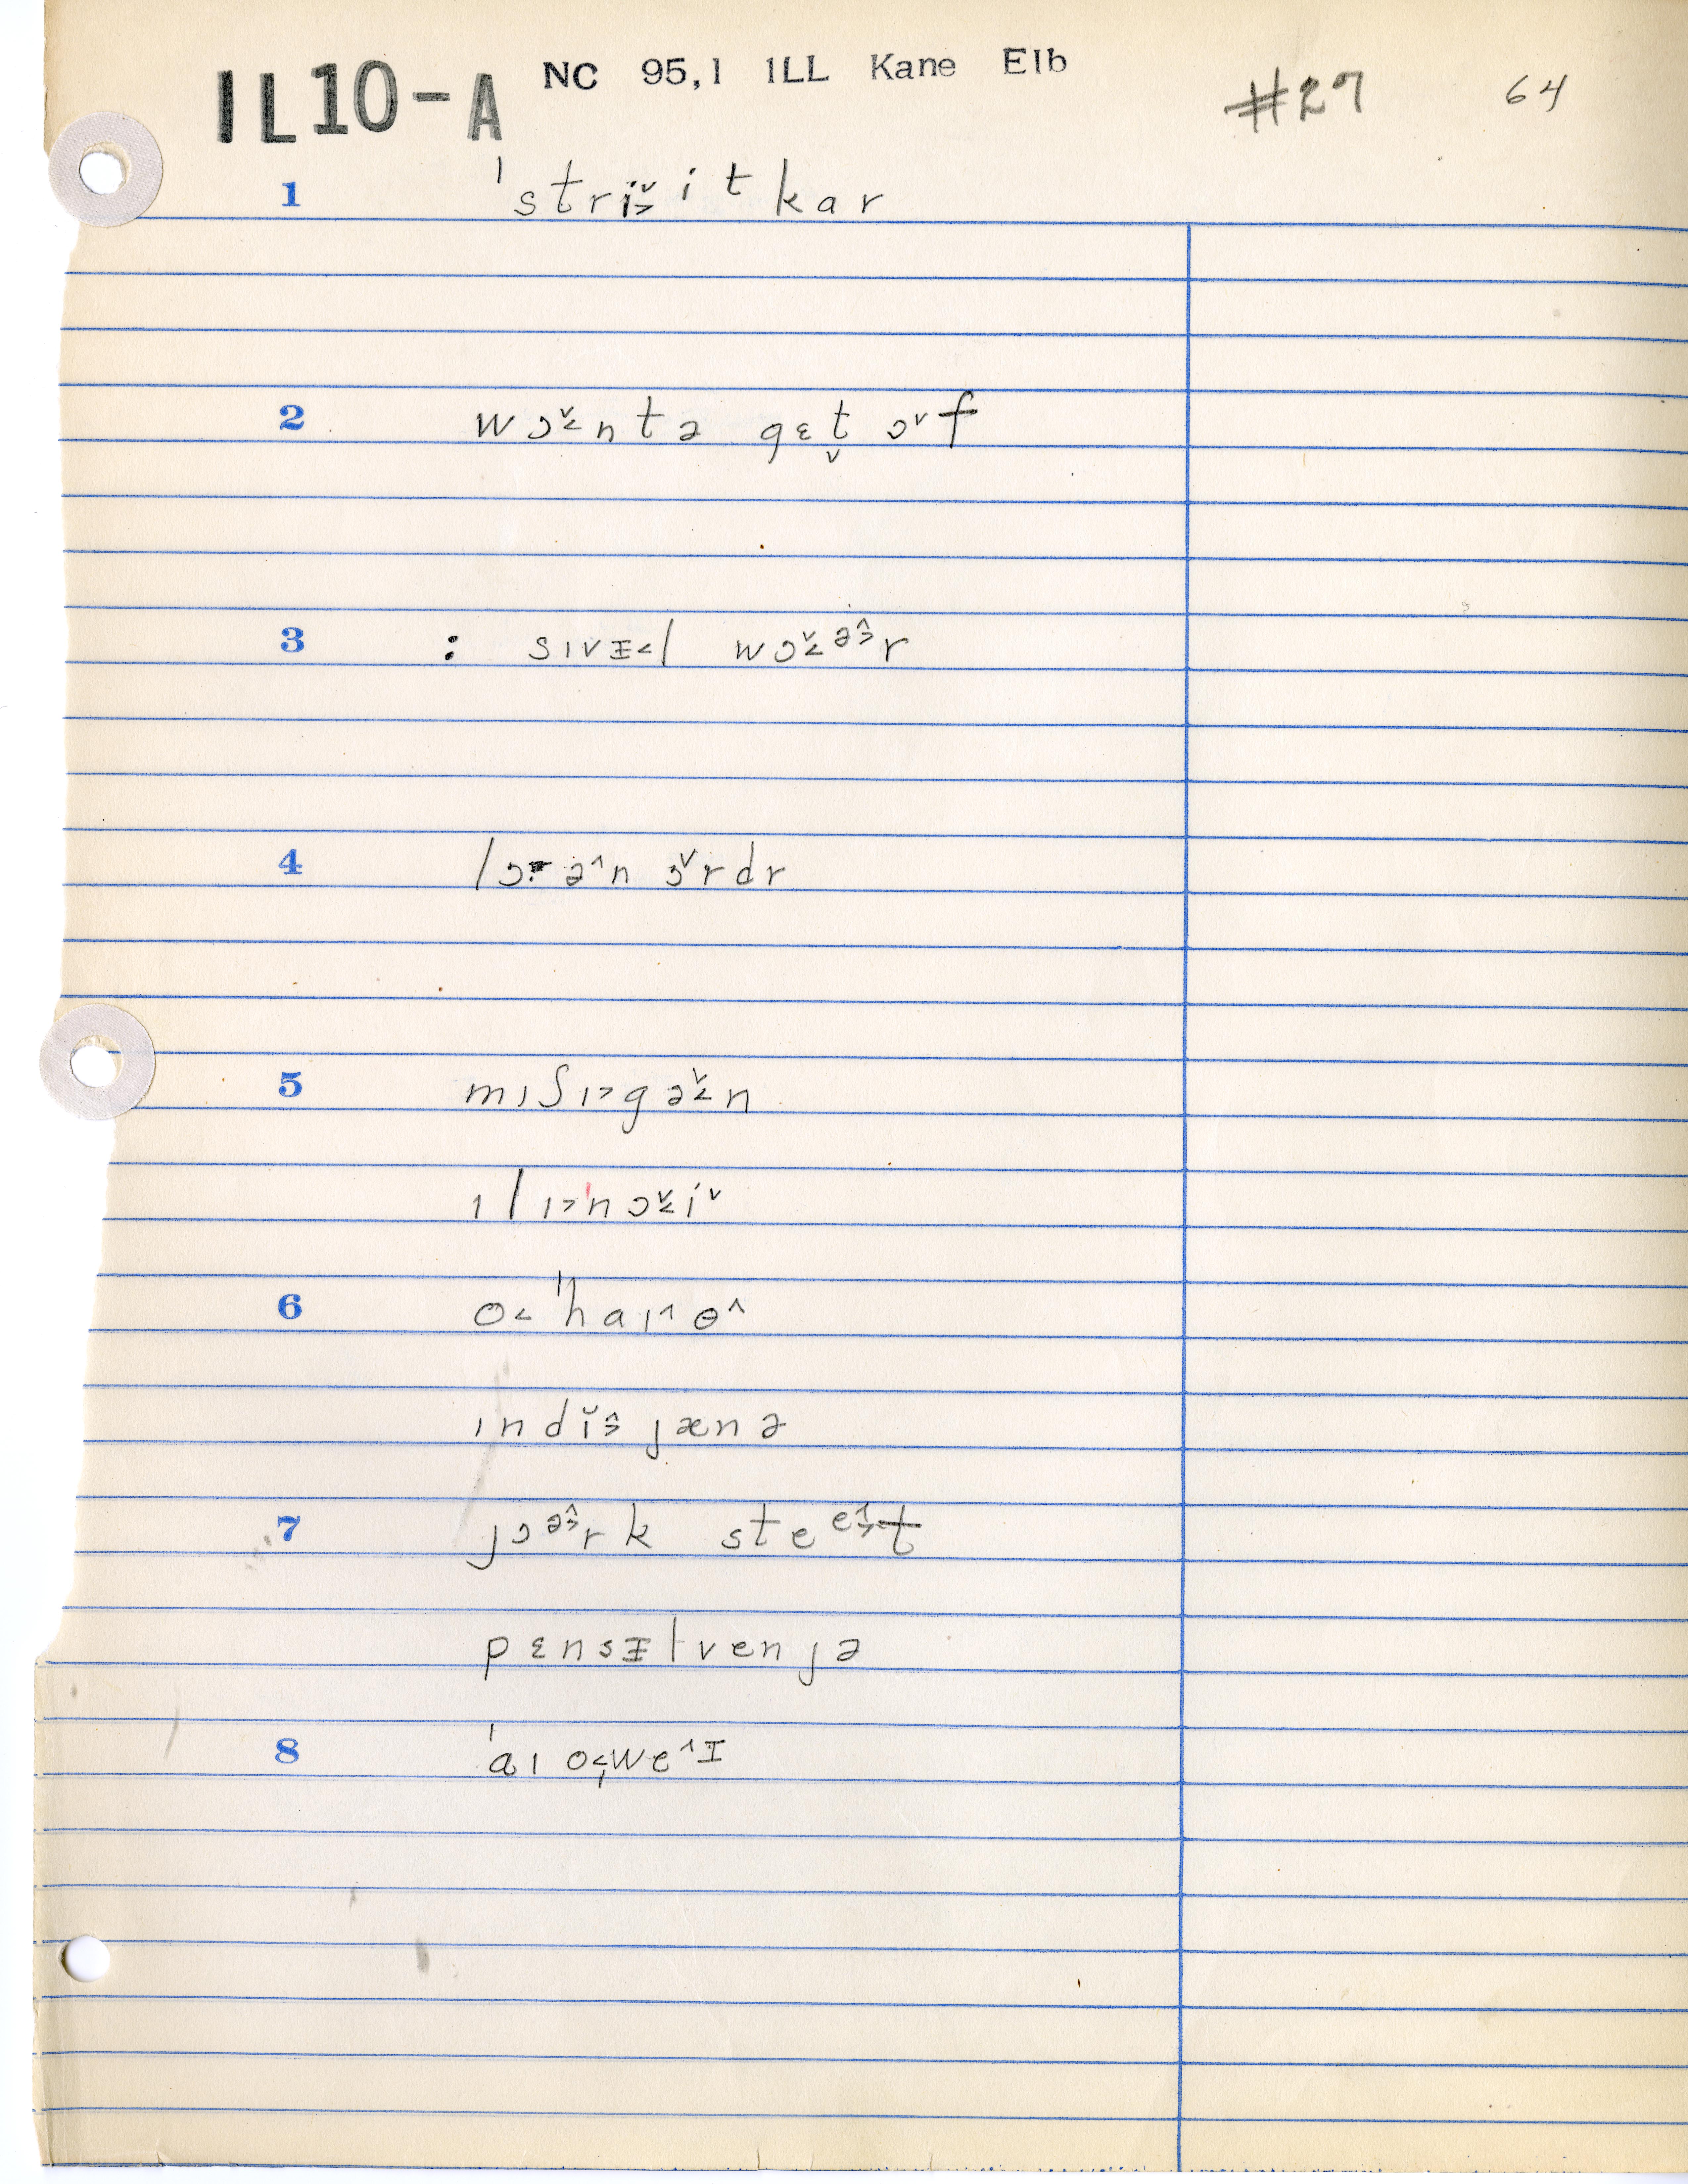 IL10-A NC 95,1 ILL Kane Elb #27 64
1 ˈstri̬˃itkar
2 wɔ̬˂ntə gɛt̬ ɔ˅f
3 : sɪvᵻ˂l wɔ̬˂ə̂˃r
4 lɔ ə^n ɔ˅rdr
5 mɪʃɪ˃gə̬˂n
ɪlɪ˃ˈnɔ̬˂i˅
6 o˂ˈhaɪ^ɵ^
ɪndi˅˃jænə
7 jɔə̂˃rk steê˃t
pɛnsᵻlvenjə
8 ˈaɪo˂weˆᵻ